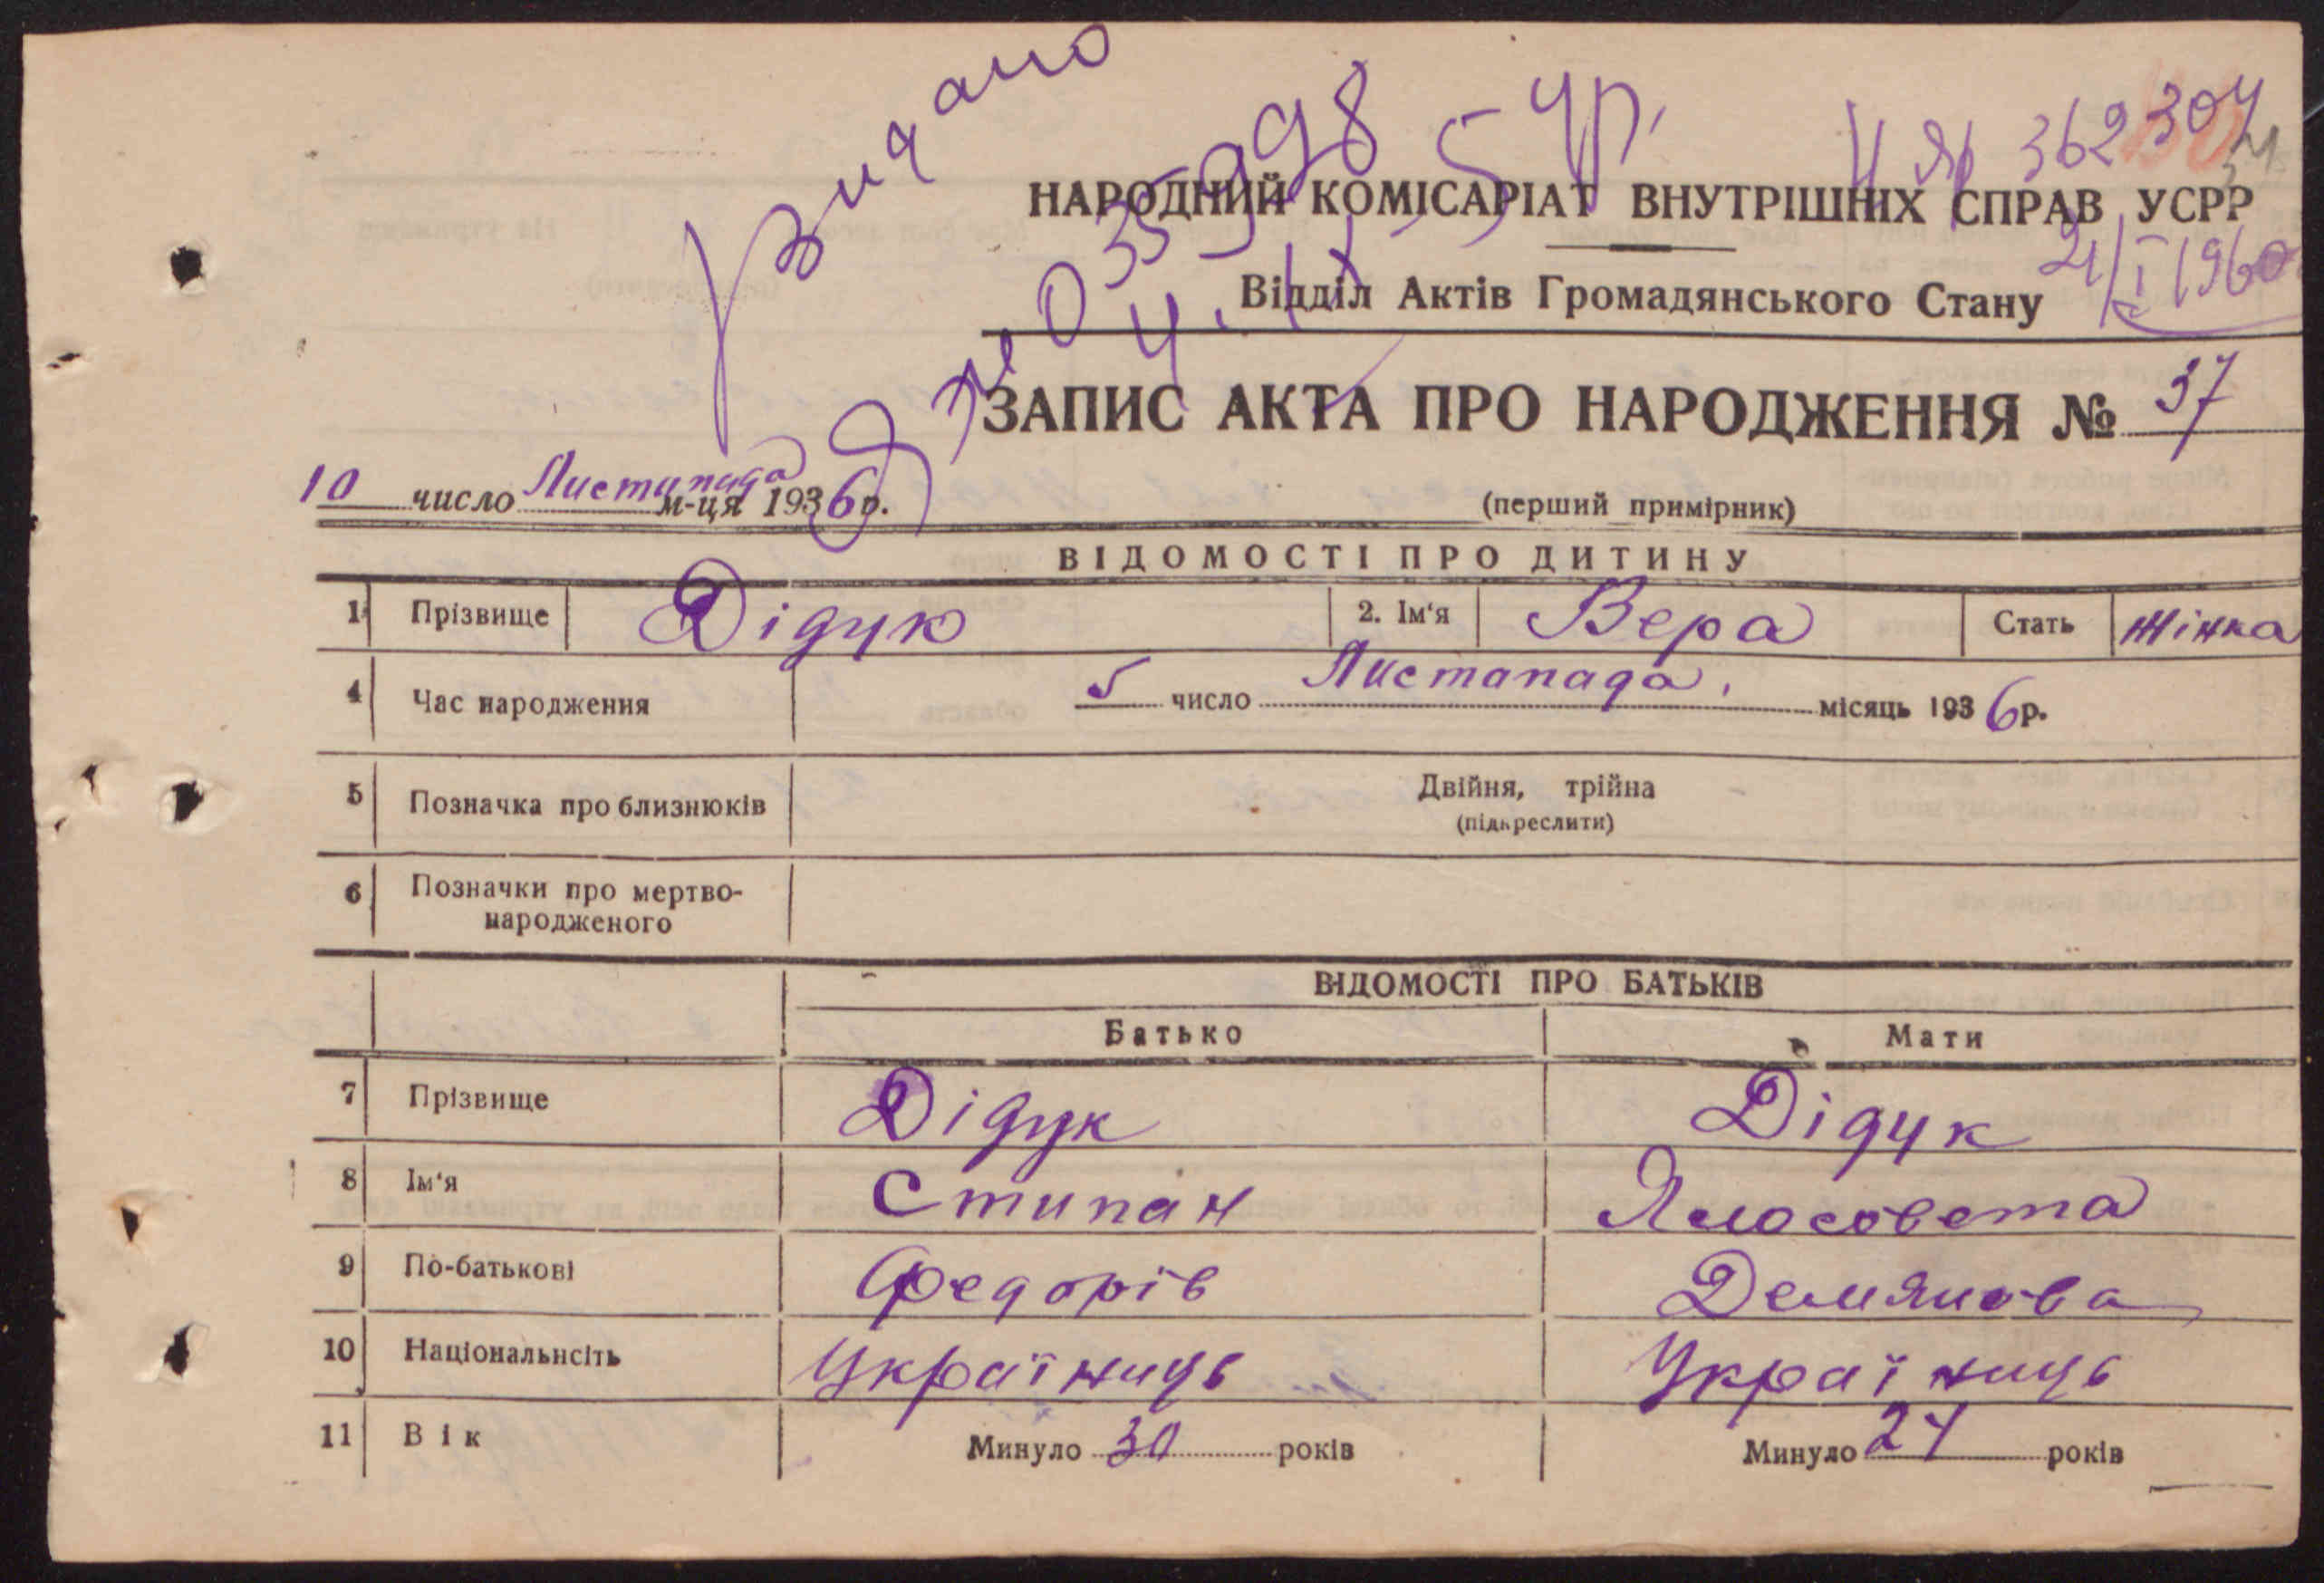 Видано
035998
4.IX-54р.
ІІ ЯР 362304
НАРОДНИЙ КОМІСАРІАТ ВНУТРІШНІХ СПРАВ УСРР
21/I 1960
Відділ Актів Громадянського Стану
ЗАПИС АКТА ПРО НАРОДЖЕННЯ № 37
10 число Листопада м-ця 1936р.
(перший примірник)
ВІДОМОСТІ ПРО ДИТИНУ
1 Прізвище Дідук 2. Ім'я Вера Стать жінка
4 Час народження 5 число Листапада, місяць 1936р.
5 Позначка про близнюків Двійня, трійна
(підкреслити)
6 Позначки про мертво-
народженого
ВІДОМОСТІ ПРО БАТЬКІВ
Батько Мати
7 Прізвище Дідук Дідук
8 Ім'я Стипан Ялосовета
9 По-батькові Федорів Демянова
10 Національнсіть Україниць Україниць
11 Вік Минуло 30 років Минуло 24 років